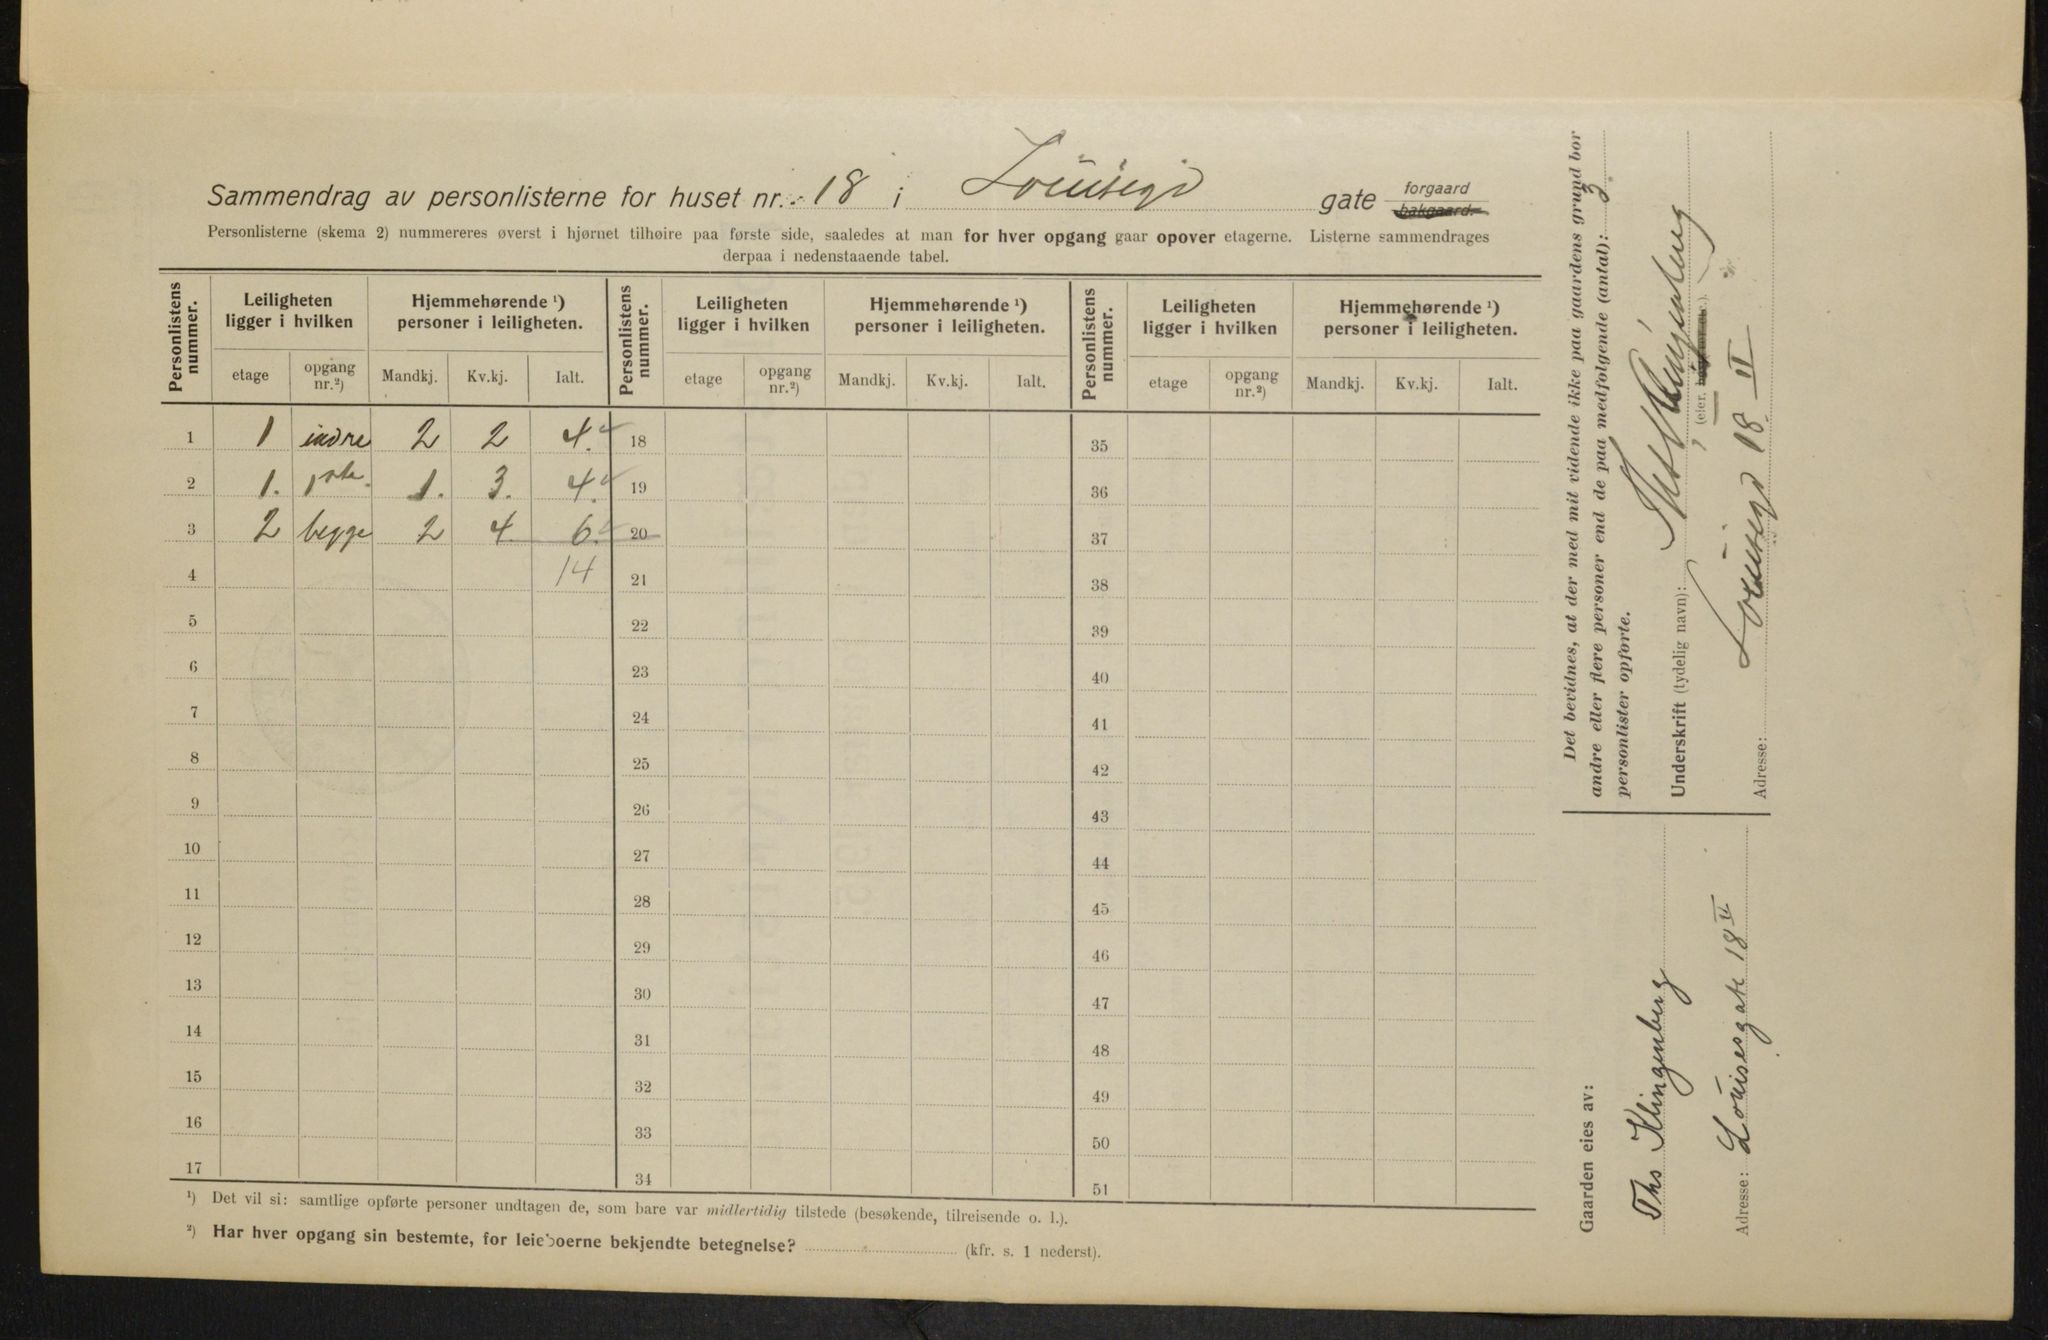 Sammendrag av personlisterne for huset nr. 18 i Louisegd gate forgaard bakgaard.
Personlisterne (skema 2) nummereres øverst i hjørnet tilhøire paa første side, saaledes at man for hver opgang gaar opover etagerne. Listerne sammendrages
derpaa i nedenstaaende tabel.
Personlistens nummer. Leiligheten ligger i hvilken Hjemmehørende ¹) personer i leiligheten. Personlistens nummer. Leiligheten ligger i hvilken Hjemmehørende ¹) personer i leiligheten. Personlistens nummer. Leiligheten ligger i hvilken Hjemmehørende ¹) personer i leiligheten.
etage opgang nr.²) Mandkj. Kv.kj. Ialt. etage opgang nr.²) Mandkj. Kv.kj. Ialt. etage opgang nr.²) Mandkj. Kv.kj. Ialt.
1 1 indre 2 2 4. 18 35
2 1. 1. 3. 4. 19 36
3 2 begge 2 4 6. 20 37
4 14 21 38
5 22 39
6 23 40
7 24 41
8 25 42
9 26 43
10 27 44
11 28 45
12 29 46
13 30 47
14 31 48
15 32 49
16 33 50
17 34 51
¹) Det vil si: samtlige opførte personer undtagen de, som bare var midlertidig tilstede (besøkende, tilreisende o. l.).
²) Har hver opgang sin bestemte, for leieboerne bekjendte betegnelse? (kfr. s. 1 nederst).
Det bevidnes, at der med mit vidende ikke paa gaardens grund bor
andre eller flere personer end de paa medfølgende (antal): 3
personlister opførte.
Underskrift (tydelig navn): Ths Klingenberg
(eier,
Adresse: Louisegd 18 II
Gaarden eies av:
Ths Klingenberg
Adresse: Louisesgate 18 II